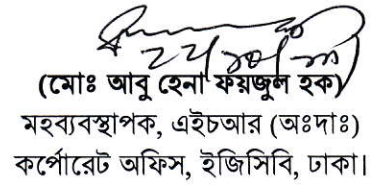 (মোঃ আবু হেনা ফয়জুল হক)
মহব্যবস্থাপক, এইচআর (অঃদাঃ)
কর্পোরেট অফিস, ইজিসিবি, ঢাকা।